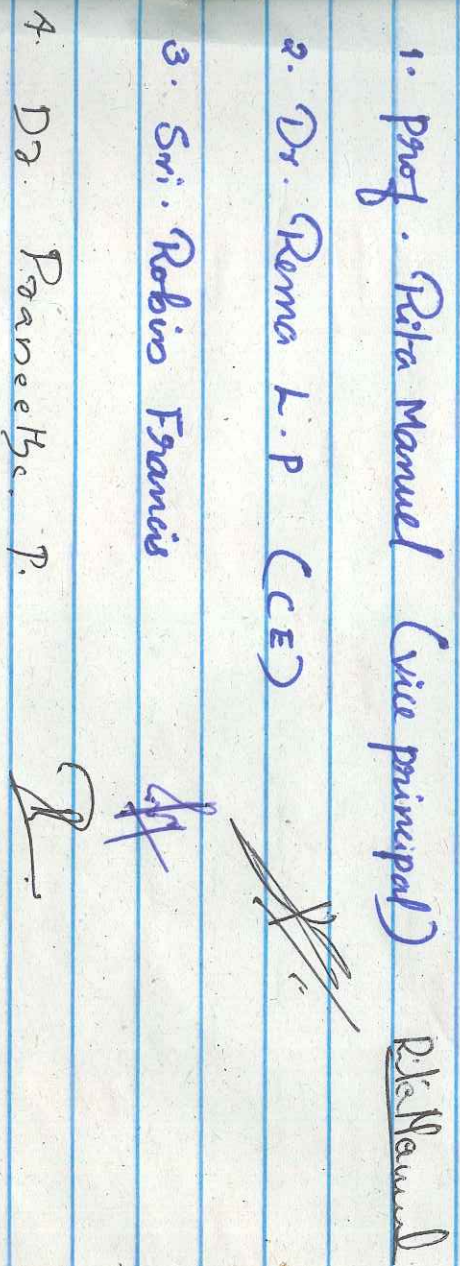 1. Prof. Rita Manuel (vice principal) Rita Manuel
2. Dr. Rema L.P (CE)
3. Sri. Robin Francis
4. Dr. Praneetha. P.